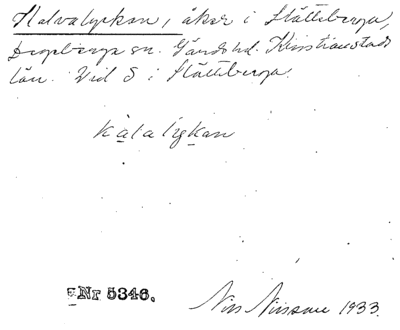 Kalvalyckan, åker i Slätteberga,
Degeberga sn. Gärds hd. Kristianstads
län. Vid S i Slätteberga.
kạlalykạn
Nr 5346.
Nils Nilsson 1933.